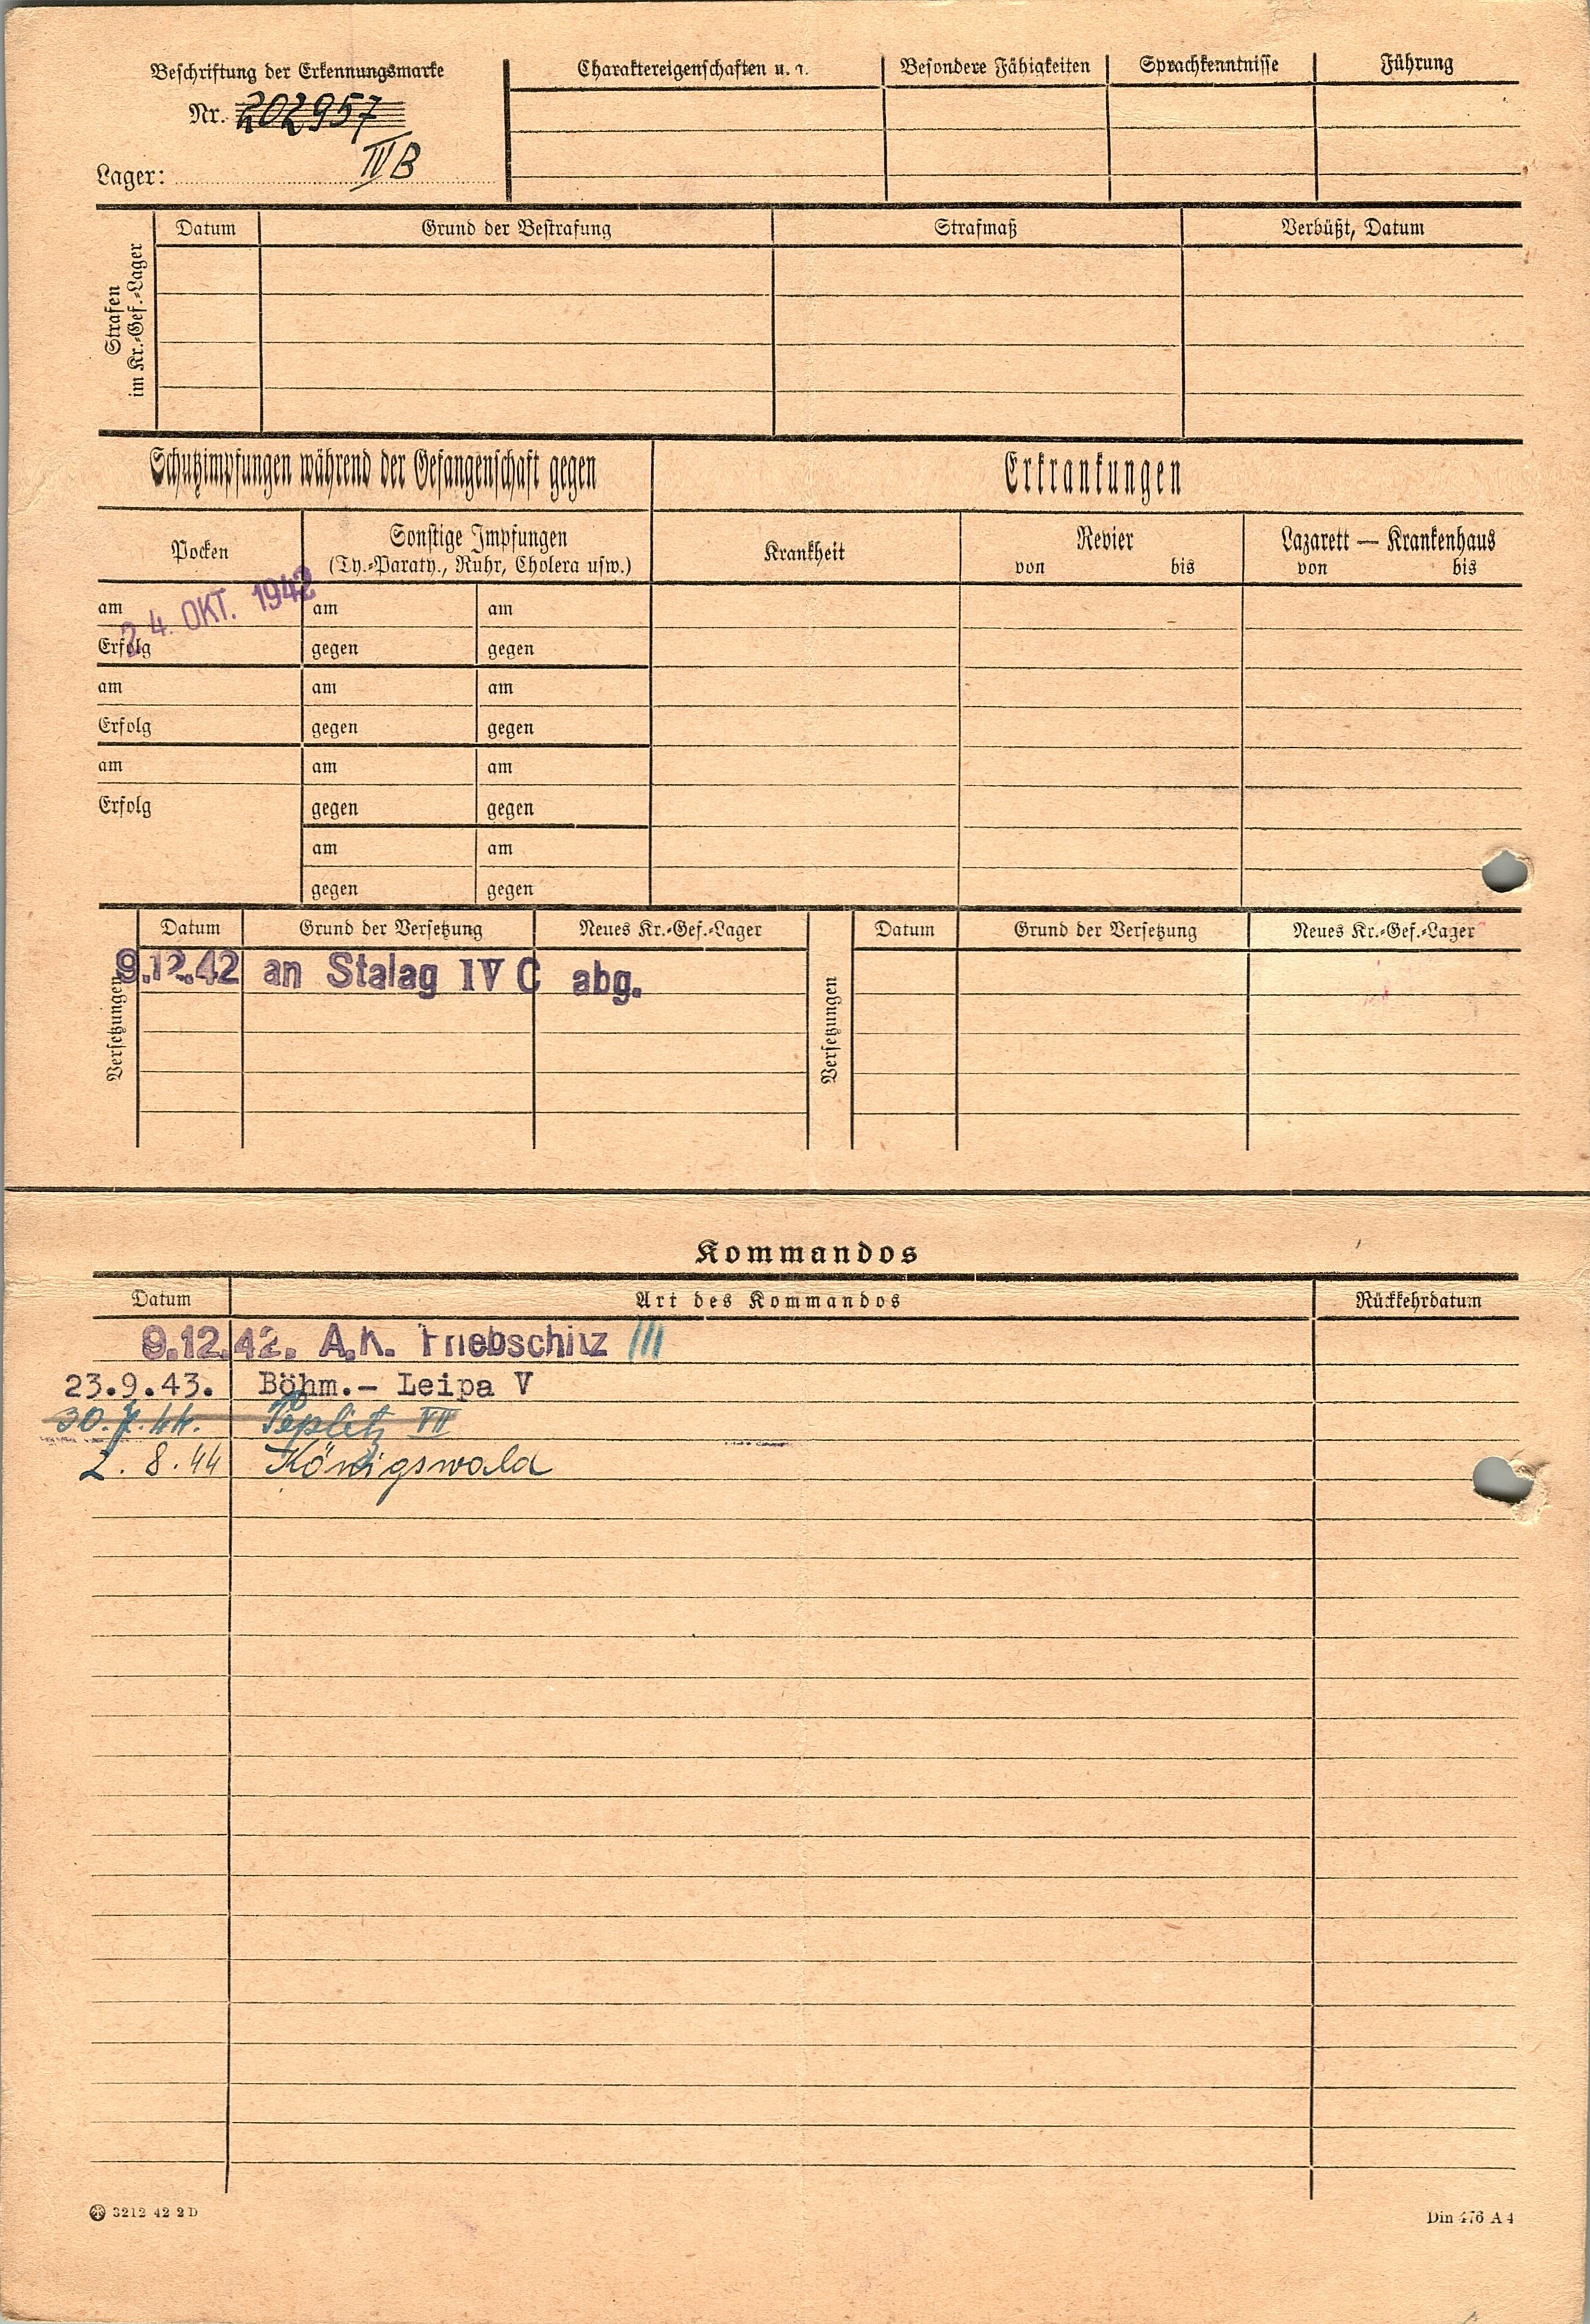 Beschriftung der Erkennungsmarke
Nr. 202957
Lager: IV B
Charaktereigenschaften u. a. Besondere Fähigkeiten Sprachkenntnisse Führung
Strafen
im Kr.-Gef.-Lager
Datum Grund der Bestrafung Strafmaß Verbüßt, Datum
Schutzimpfungen während der Gefangenschaft gegen Erkrankungen
Pocken Sonstige Impfungen Krankheit Revier Lazarett — Krankenhaus
(Ty.-Paraty., Ruhr, Cholera usw.) von bis von bis
24. OKT. 1942
am am am
Erfolg gegen gegen
am am am
Erfolg gegen gegen
am am am
Erfolg gegen gegen
am am
gegen gegen
Versetzungen
Datum Grund der Versetzung Neues Kr.-Gef.-Lager
9.12.42 an Stalag IV C abg.
Versetzungen
Datum Grund der Versetzung Neues Kr.-Gef.-Lager
Kommandos
Datum Art des Kommandos Rückkehrdatum
9.12.42. A.K. Triebschitz III
23.9.43. Böhm.- Leipa V
30.7.44. Teplitz VII
2.8.44 Königswald
3212 42 2 D Din 476 A 4